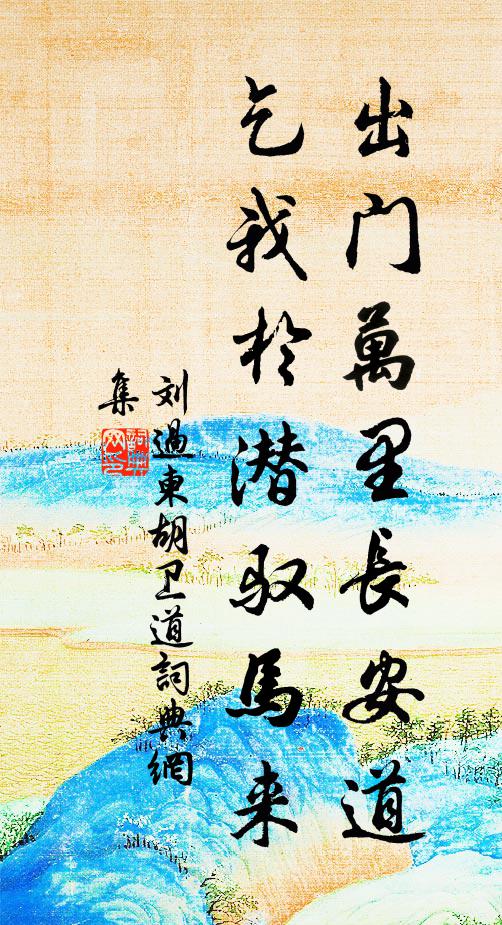 出门萬里長安道
乞我於潜馭馬来
刘過東胡卫道詞典網
集